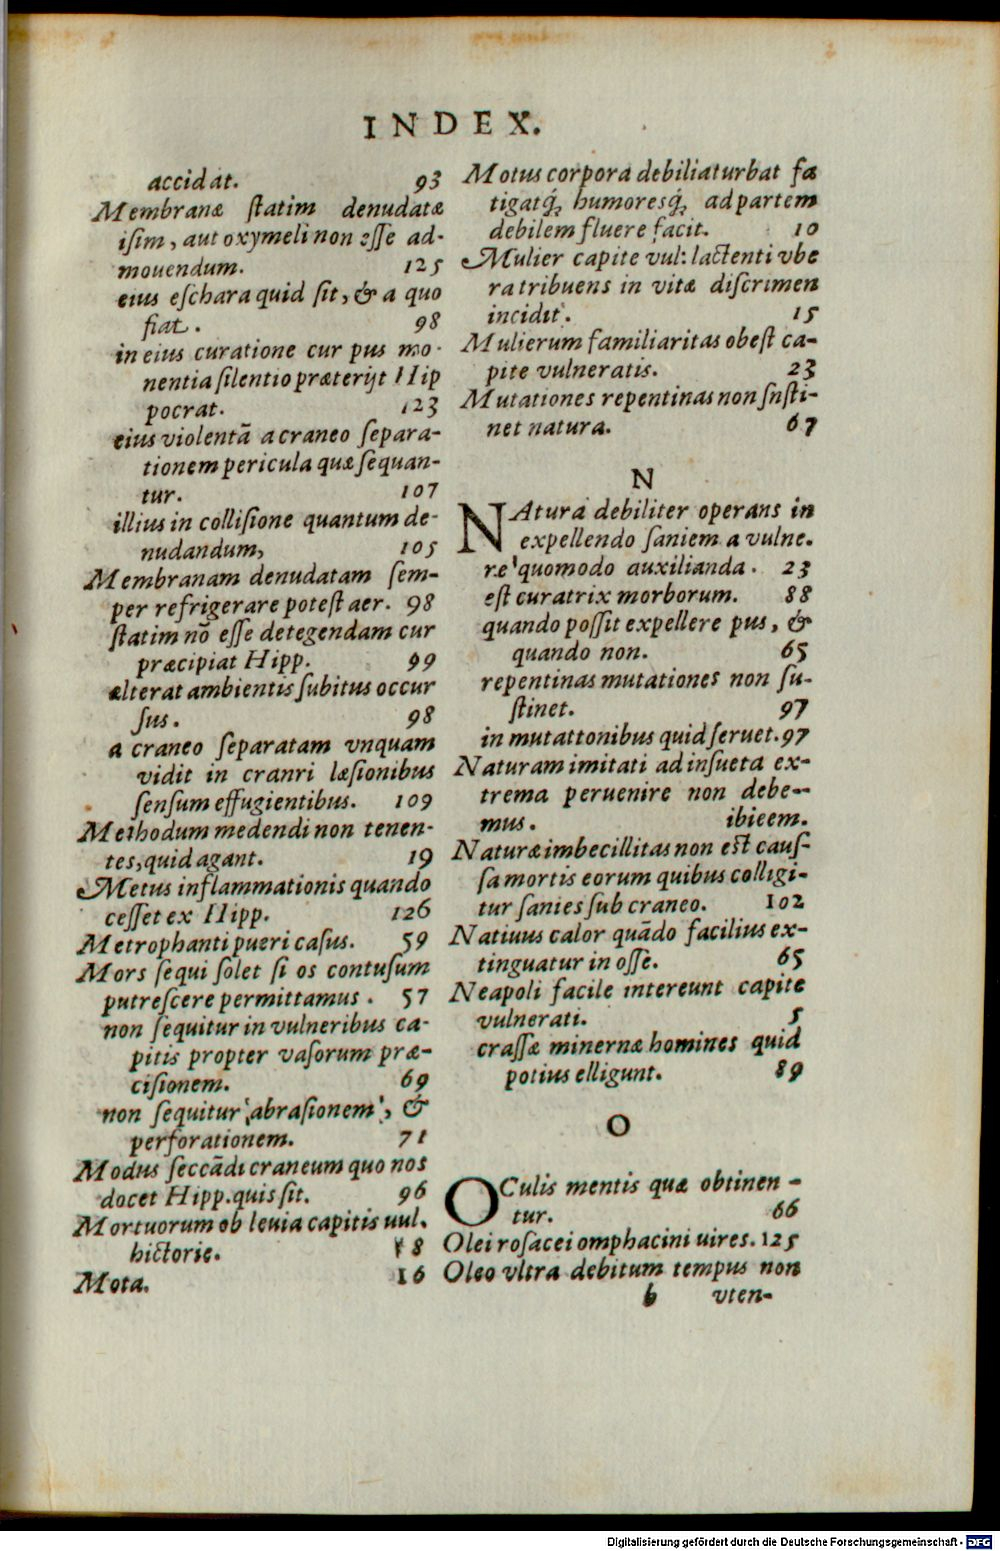 INDEX.
accidat. 93
Membranæ ſtatim denudatæ
iſim, aut oxymeli non eſſe ad-
mouendum. 125
eius eſchara quid ſit, & a quo
fiat. 98
in eius curatione cur pus mo-
nentia ſilentio præterijt Hip
pocrat. 123
eius violentã a craneo ſepara-
tionem pericula quæ ſequan-
tur. 107
illius in colliſione quantum de-
nudandum, 105
Membranam denudatam ſem-
per refrigerare poteſt aer. 98
ſtatim nõ eſſe detegendam cur
præcipiat Hipp. 99
ælterat ambientis ſubitus occur
ſus. 98
a craneo ſeparatam vnquam
vidit in cranri læſionibus
ſenſum effugientibus. 109
Methodum medendi non tenen-
tes, quid agant. 19
Metus inflammationis quando
ceſſet ex Hipp. 126
Metrophanti pueri caſus. 59
Mors ſequi ſolet ſi os contuſum
putreſcere permittamus. 57
non ſequitur in vulneribus ca-
pitis propter vaſorum præ-
ciſionem. 69
non ſequitur abraſionem, &
perforationem. 71
Modus ſeccãdi craneum quo nos
docet Hipp. quis ſit. 96
Mortuorum ob leuia capitis uul.
hictorie. 18
Mota. 16
Motus corpora debilia turbat fa
tigatq́; humoresq́; ad partem
debilem fluere facit. 10
Mulier capite vul: lactenti vbe
ra tribuens in vitæ diſcrimen
incidit. 15
Mulierum familiaritas obeſt ca-
pite vulneratis. 23
Mutationes repentinas non ſnſti-
net natura. 67
N
NAtura debiliter operans in
expellendo ſaniem a vulne.
re quomodo auxilianda. 23
eſt curatrix morborum. 88
quando poſſit expellere pus, &
quando non. 65
repentinas mutationes non ſu-
ſtinet. 97
in mutattonibus quid ſeruet. 97
Naturam imitati ad inſueta ex-
trema peruenire non debe-
mus. ibieem.
Naturæ imbecillitas non eſt cauſ-
ſa mortis eorum quibus colligi-
tur ſanies ſub craneo. 102
Natiuus calor quãdo facilius ex-
tinguatur in oſſe. 65
Neapoli facile intereunt capite
vulnerati. 5
craſſæ minernæ homines quid
potius elligunt. 89
O
OCulis mentis quæ obtinen-
tur. 66
Olei roſacei omphacini uires. 125
Oleo vltra debitum tempus non
b vten-
Digitalisierung gefördert durch die Deutsche Forschungsgemeinschaft - DFG